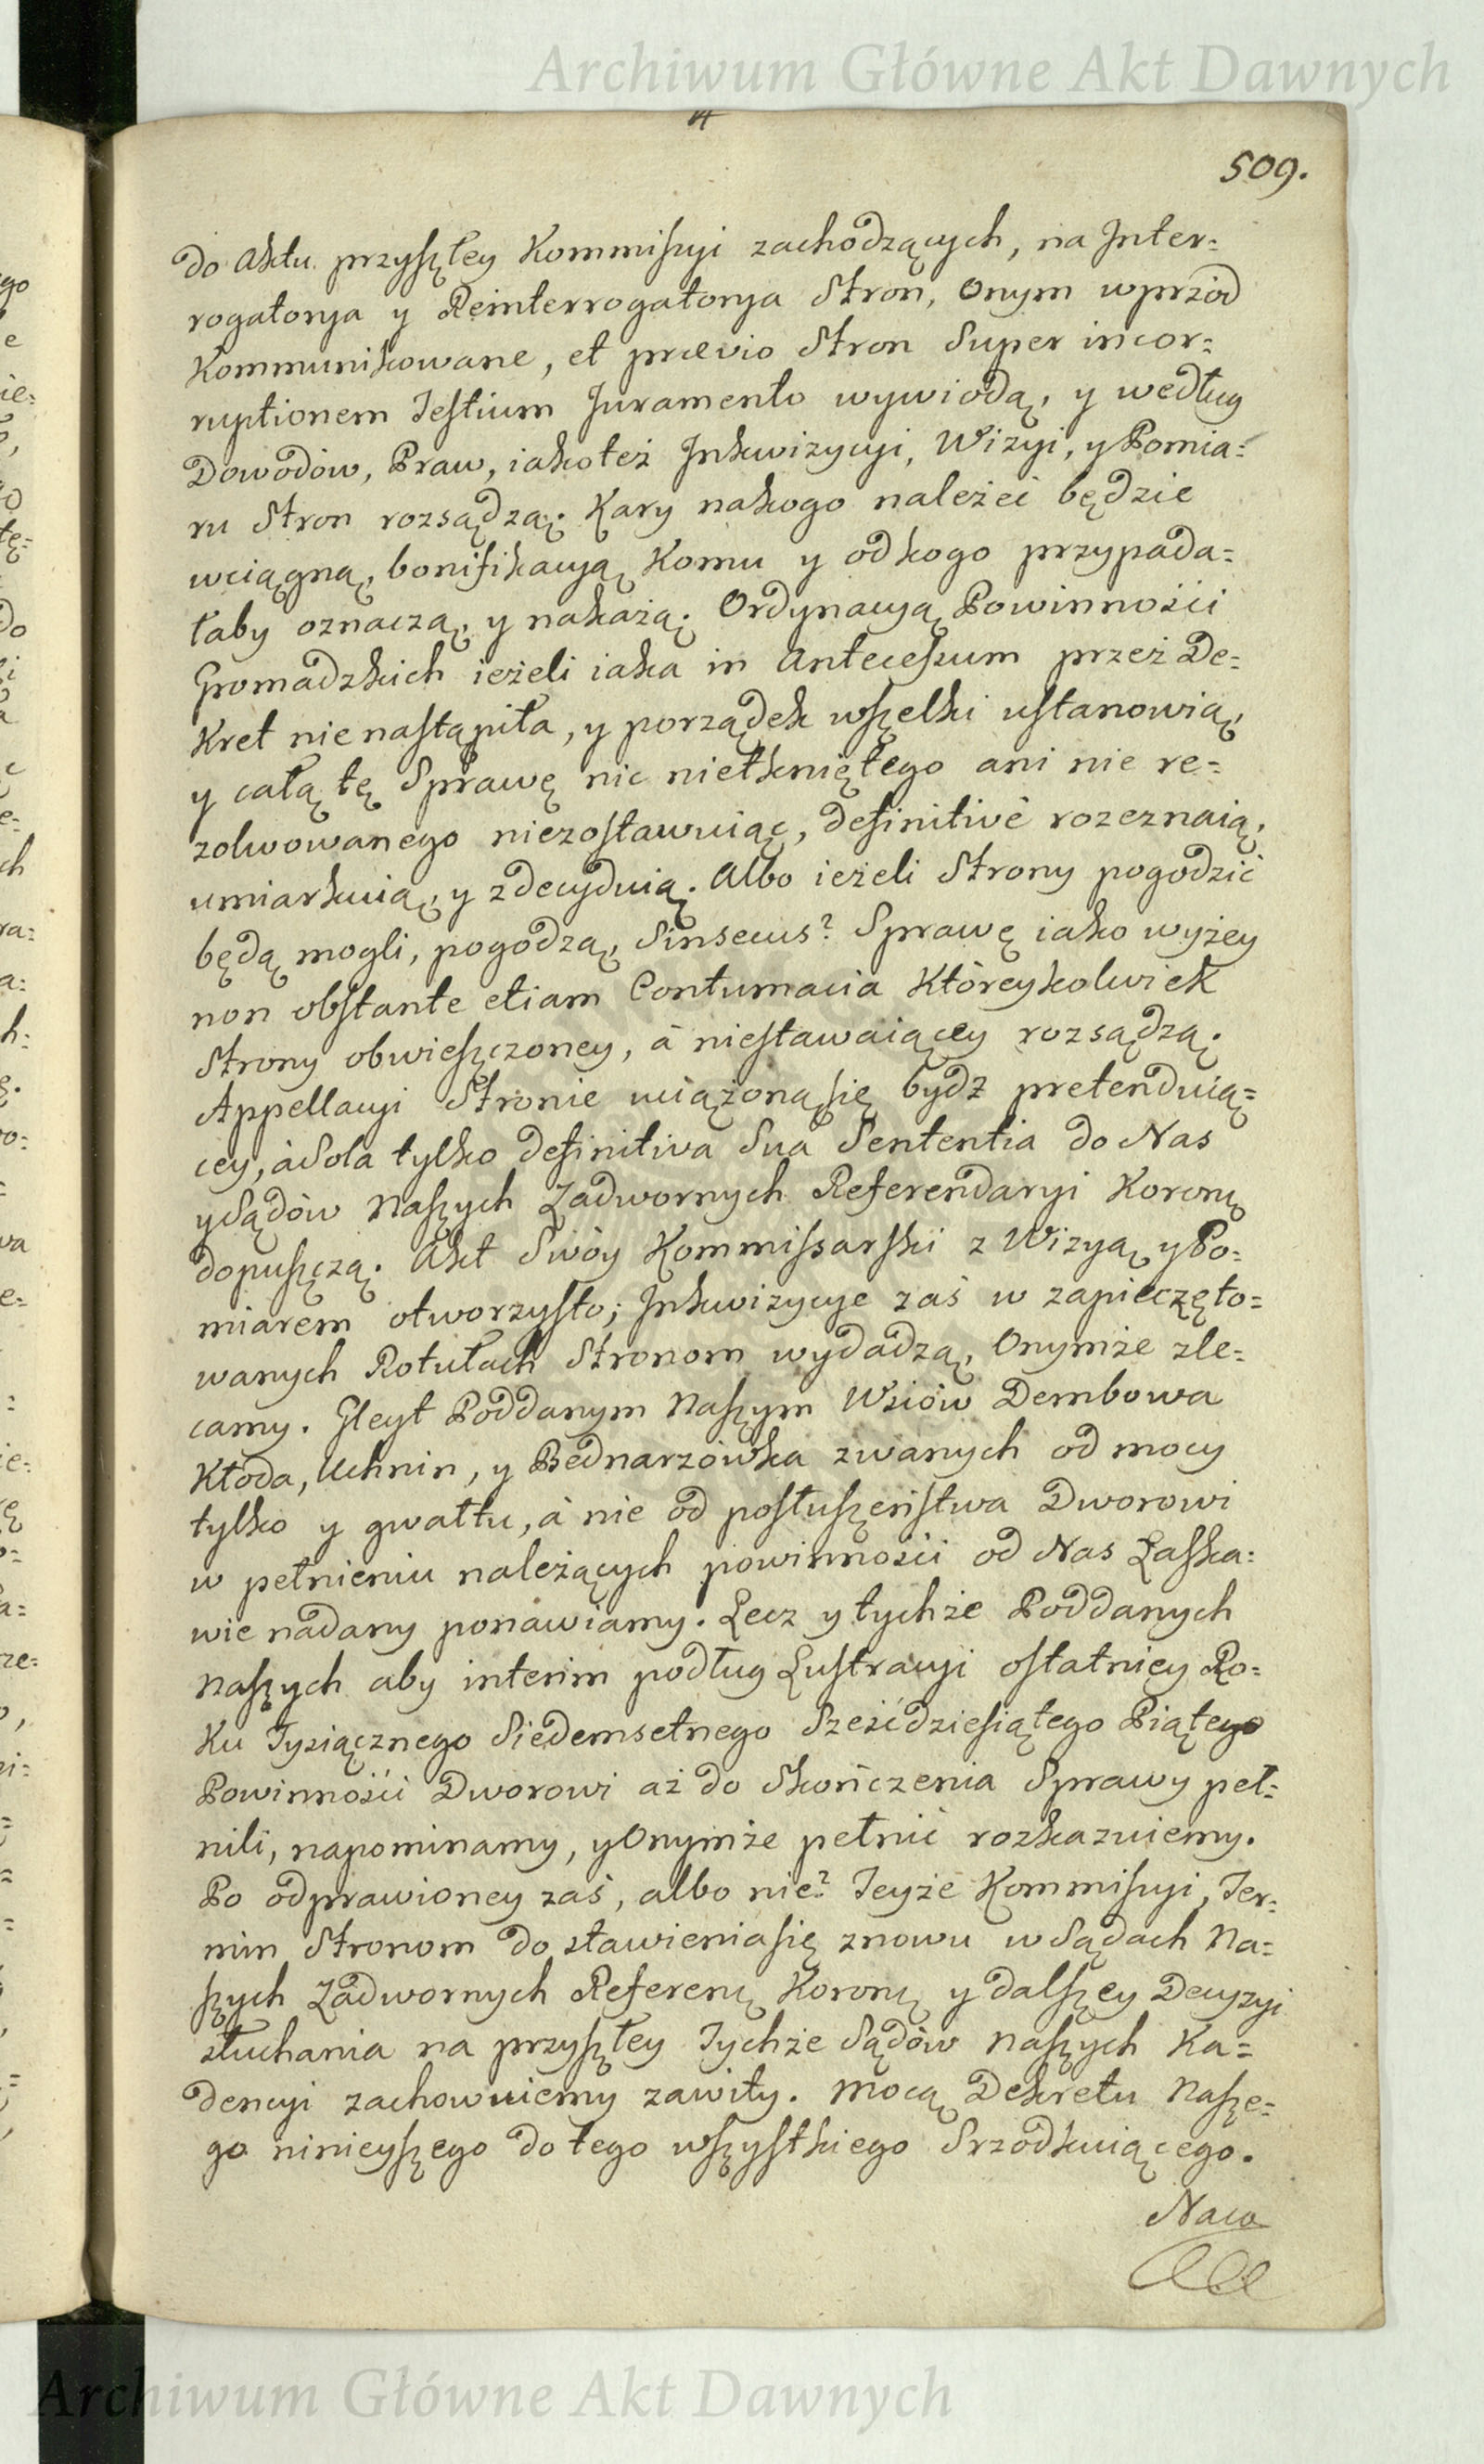 Archiwum Główne Akt Dawnych
509.
do Aktu przyszłey Kommissyi zachodzących, na Inter=
rogatorya y Reinterrogatorya Stron, Onym wprzód
Kommunikowane, et prævio Stron Super incor=
ruptionem Testium Juramento wywiodą, y według
Dowodów, Praw, iakoteż Inkwizycyi, Wizyi, y Pomia=
ru Stron rozsądzą. Kary nakogo należeć będzie
wciągną, bonifikacyą Komu y od kogo przypada=
łaby oznaczą, y nakażą. Ordynacyą Powinności
Gromadzkich ieżeli iaka in Antecessum przez De=
kret nie nastąpiła, y porządek wszelki ustanowią,
y całą tę Sprawę nic nietkniętego ani nie re=
zolwowanego niezostawuiąc, definitivè rozeznaią,
umiarkuią, y zdecyduią. Albo ieżeli Strony pogodzić
będą mogli, pogodzą, Sinsecus? Sprawę iako wyżey
non obstante etiam Contumacia Któreykolwiek
Strony obwieszczoney, à niestawaiącey rozsądzą.
Appellacyi Stronie uciążoną się bydź pretenduią=
cey, à Sola tylko definitiva Sua Sententia do Nas
y Sądów Naszych Zadwornych Referendaryi Koronę
dopuszczą. Akt Swóy Kommissarski z Wizyą y Po=
miarem otworzysto; Inkwizycye zaś w zapieczęto=
wanych Rotułach Stronom wydadzą, Onymże zle=
camy. Gleyt Poddanym Naszym Wsiów Dembowa
Kłoda, Uchnin, y Bednarzówka zwanych od mocy
tylko y gwałtu, à nie od posłuszeństwa Dworowi
w pełnieniu należących powinności od Nas Łaska=
wie nadany ponawiamy. Lecz y tychże Poddanych
Naszych aby interim podług Lustracyi ostatniey Ro=
ku Tysiącznego Siedemsetnego Sześćdziesiątego Piątego
Powinności Dworowi aż do Skończenia Sprawy peł=
nili, napominamy, y Onymże pełnić rozkazuiemy.
Po odprawioney zaś, albo nie? Teyże Kommissyi, Ter=
min Stronom do stawienia się znowu w Sądach Na=
szych Zadwornych Referenę Koronę y dalszey Decyzyi
słuchania na przyszłey Tychże Sądów Naszych Ka=
dencyi zachowuiemy zawity. Mocą Dekretu Nasze=
go ninieyszego do tego wszystkiego Srzodkuiącego.
Naco
Archiwum Główne Akt Dawnych